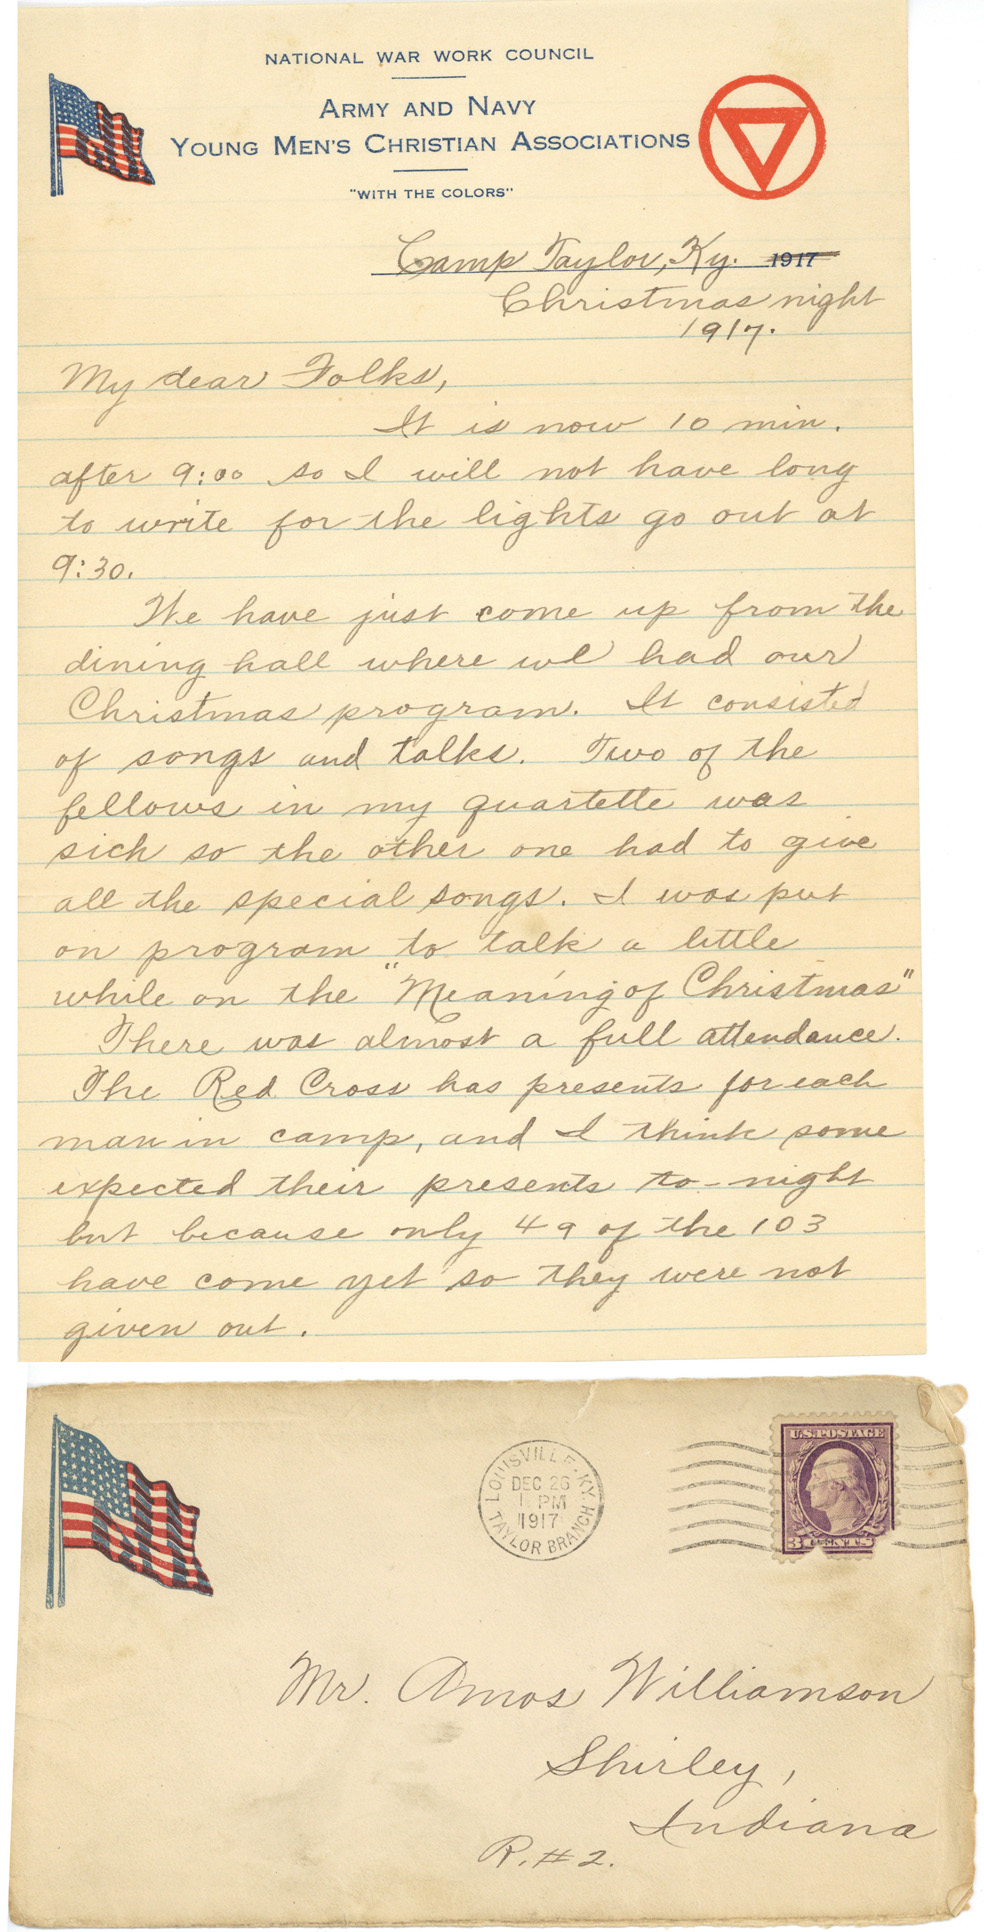 NATIONAL WAR WORK COUNCIL
ARMY AND NAVY
YOUNG MEN'S CHRISTIAN ASSOCIATIONS
"WITH THE COLORS"
Camp Taylor, Ky. 1917
Christmas night
1917.
My dear Folks,
It is now 10 min.
after 9:00 so I will not have long
to write for the lights go out at
9:30.
We have just come up from the
dining hall where we had our
Christmas program. It consisted
of songs and talks. Two of the
fellows in my quartette was
sick so the other one had to give
all the special songs. I was put
on program to talk a little
while on the "Meaning of Christmas"
There was almost a full attendance.
The Red Cross has presents for each
man in camp, and I think some
expected their presents to-night
but because only 49 of the 103
have come yet so they were not
given out.
LOUISVILLE, KY.
DEC 26
1 PM
1917
TAYLOR BRANCH
U.S. POSTAGE
3 CENTS 3
Mr. Amos Williamson
Shirley,
Indiana
R. #2.